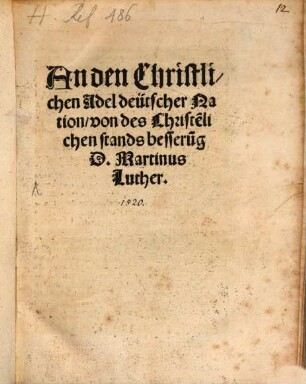 H. Ref 486
12
An den Christli/
chen Adel deütscher Na
tion/von des Christēli
chen stands besserūg
D. Martinus
Luther.
1520.